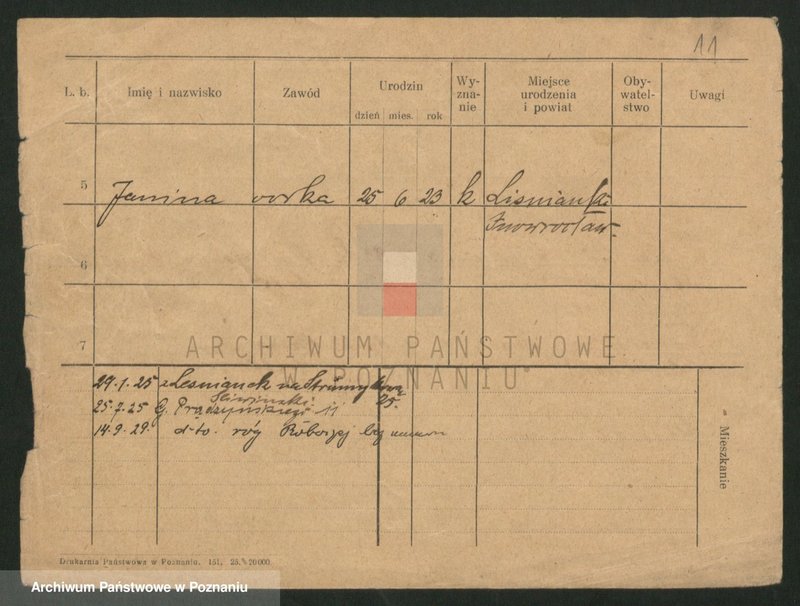 11
L. b. Imię i nazwisko Zawód Urodzin dzień mies. rok Wy- zna- nie Miejsce urodzenia i powiat Oby- watel- stwo Uwagi
5 Janina corka 25 6 23 k Lisnianki
Inowrocław.
6
7
ARCHIWUM PAŃSTWOWE
W POZNANIU
29.1.25 z Lesnianek na Strumykową 25.
Śliwinski
25.7.25 G. Prądzyńskiego 11
14.9.29. d-to. róg Roboczej bez
Mieszkanie
Drukarnia Państwowa w Poznaniu. 151, 25. 20000
Archiwum Państwowe w Poznaniu